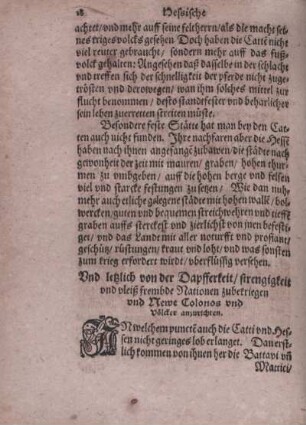 Hessische
achtet/vnd mehr auff seine feltherrn/als die macht sei-
nes kriges volcks gesehen Doch haben die Catti nicht
viel reuter gebraucht / sondern mehr auff das fuß-
volck gehalten: Angesehen daß dasselbe in der schlacht
vnd treffen sich der schnelligkeit der pferde nicht zuge-
trösten vnd derowegen/ wan ihm solches mittel zur
flucht benommen / desto standfester vnd beharlicher
sein leben zuerretten streiten müste.
Besondere feste Stätte hat man bey den Cat-
ten auch nicht funden. Ihre nachfaren aber die Hesse
haben nach ihnen angefangē zubawen/die städte nach
gewonheit der zeit mit mauren/ graben/ hohen thur-
men zu vmbgeben/ auff die hohen berge vnd felsen
viel vnd starcke festungen zu setzen/ Wie dan nuhn-
mehr auch etliche gelegene städte mit hohen wall/ bol-
wercken/guten vnd bequemen streichwehren vnd tieffē
graben auffs sterckest vnd zierlichst von inen befesti-
get/ vnd das Land mit aller noturfft vnd proffiant/
geschütz/ rüstungen/ kraut vnd loht/ vnd was sonsten
zum krieg erfordert wirdt/ überflüssig versehen.
Vnd letzlich von der Dapfferkeit/ strengigkeit
vnd vleiß frembde Nationen zubekriegen
vnd Newe Colonos vnd
Völcker anzurichten.
IN welchem punctē auch die Catti vnd Hes-
sen nicht geringes lob erlanget. Dan erst-
lich kommen von ihnen her die Battavi vñ
Mattici/